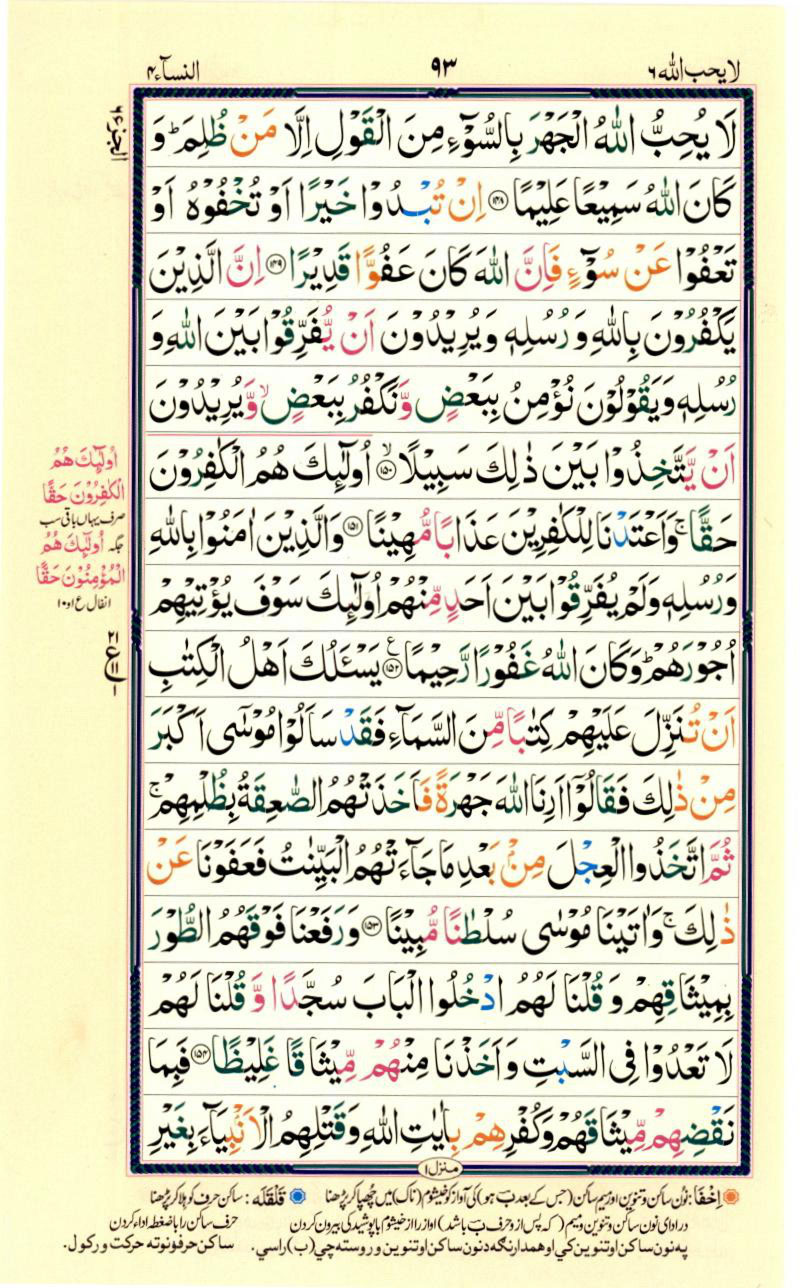 لا یحب اللہ ۶
۹۳
النسآء ۴
الجزء ۶
لَا يُحِبُّ اللّٰهُ الْجَهْرَ بِالسُّوْٓءِ مِنَ الْقَوْلِ اِلَّا مَنْ ظُلِمَ ؕ وَ
كَانَ اللّٰهُ سَمِيْعًا عَلِيْمًا ۝۱۴۸ اِنْ تُبْدُوْا خَيْرًا اَوْ تُخْفُوْهُ اَوْ
تَعْفُوْا عَنْ سُوْٓءٍ فَاِنَّ اللّٰهَ كَانَ عَفُوًّا قَدِيْرًا ۝۱۴۹ اِنَّ الَّذِيْنَ
يَكْفُرُوْنَ بِاللّٰهِ وَ رُسُلِهٖ وَيُرِيْدُوْنَ اَنْ يُّفَرِّقُوْا بَيْنَ اللّٰهِ وَ
رُسُلِهٖ وَيَقُوْلُوْنَ نُؤْمِنُ بِبَعْضٍ وَّنَكْفُرُ بِبَعْضٍ ۙ وَّيُرِيْدُوْنَ
اَنْ يَّتَّخِذُوْا بَيْنَ ذٰلِكَ سَبِيْلًا ۝۱۵۰ ۙ اُولٰٓئِكَ هُمُ الْكٰفِرُوْنَ
حَقًّا ۚ وَاَعْتَدْنَا لِلْكٰفِرِيْنَ عَذَابًا مُّهِيْنًا ۝۱۵۱ وَالَّذِيْنَ اٰمَنُوْا بِاللّٰهِ
وَرُسُلِهٖ وَلَمْ يُفَرِّقُوْا بَيْنَ اَحَدٍ مِّنْهُمْ اُولٰٓئِكَ سَوْفَ يُؤْتِيْهِمْ
اُجُوْرَهُمْ ؕ وَكَانَ اللّٰهُ غَفُوْرًا رَّحِيْمًا ۝۱۵۲ ع يَسْـَٔلُكَ اَهْلُ الْكِتٰبِ
اَنْ تُنَزِّلَ عَلَيْهِمْ كِتٰبًا مِّنَ السَّمَآءِ فَقَدْ سَاَلُوْا مُوْسٰٓى اَكْبَرَ
مِنْ ذٰلِكَ فَقَالُوْٓا اَرِنَا اللّٰهَ جَهْرَةً فَاَخَذَتْهُمُ الصّٰعِقَةُ بِظُلْمِهِمْ ۚ
ثُمَّ اتَّخَذُوا الْعِجْلَ مِنْۢ بَعْدِ مَا جَآءَتْهُمُ الْبَيِّنٰتُ فَعَفَوْنَا عَنْ
ذٰلِكَ ۚ وَاٰتَيْنَا مُوْسٰى سُلْطٰنًا مُّبِيْنًا ۝۱۵۳ وَرَفَعْنَا فَوْقَهُمُ الطُّوْرَ
بِمِيْثَاقِهِمْ وَ قُلْنَا لَهُمُ ادْخُلُوا الْبَابَ سُجَّدًا وَّ قُلْنَا لَهُمْ
لَا تَعْدُوْا فِى السَّبْتِ وَ اَخَذْنَا مِنْهُمْ مِّيْثَاقًا غَلِيْظًا ۝۱۵۴ فَبِمَا
نَقْضِهِمْ مِّيْثَاقَهُمْ وَكُفْرِهِمْ بِاٰيٰتِ اللّٰهِ وَقَتْلِهِمُ الْاَنْۢبِيَآءَ بِغَيْرِ
اُولٰٓئِكَ هُمُ
الْكٰفِرُوْنَ حَقًّا
صرف یہاں باقی سب
جگہ اُولٰٓئِكَ هُمُ
الْمُؤْمِنُوْنَ حَقًّا
انفال ع ۱ و ۱۰
۲۱
ع
۱۱
۱
منزل ۱
اِخْفَا: نون ساکن و تنوین اور میم ساکن (جس کے بعد ب ہو) کی آواز کو خیشوم (ناک) میں چھپا کر پڑھنا
قَلْقَلَه: ساکن حرف کو ہلا کر پڑھنا
در ادای نون ساکن و تنوین و میم (که پس از و حرف ب باشد) آواز را از خیشوم با پوشیدگی بیرون کردن
حرف ساکن را با ضغطه ادا کردن
په نون ساکن او تنوین کي او همدارنګه د نون ساکن او تنوین و روسته چي (ب) راسي.
ساکن حرفونو ته حرکت ورکول.